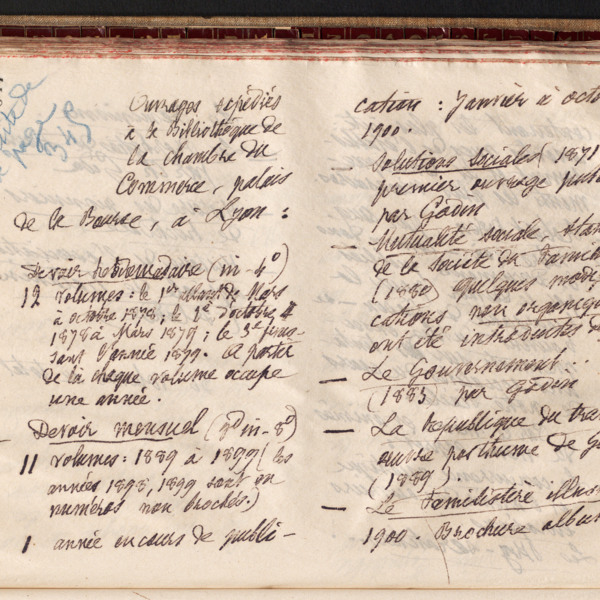 suite de
page
345
Ouvrages expédiés
à la Bibliothèque de
la chambre du
Commerce, palais
de la Bourse, à Lyon :
Devoir hebdomadaire (in-4°)
12 volumes : le 1er allant de Mars
à octobre 1878 ; le 2e d'octobre
1878 à Mars 1879 ; le 3e finis-
sant l'année 1879. A partir
de là chaque volume occupe
une année.
Devoir mensuel (gd in-8°)
11 volumes : 1889 à 1899 (les
années 1898, 1899 sont en
numéros non brochés.)
1. année en cours de publi-
cation : Janvier à octo
1900.
— Solutions sociales (1871
premier ouvrage pub
par Godin
— Mutualité sociale, stat
de la Société du Famili
(1880) quelques modif
cations non organiqu
ont été introduites d
— Le Gouvernement...
(1883) par Godin
— La République du tra
œuvre posthume de G
(1889).
— Le Familistère illus
1900. Brochure albu